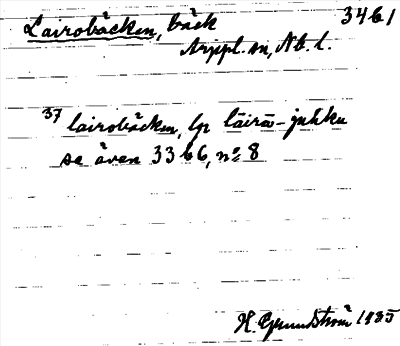 Lairobäcken, bäck 3461
Arjepl. sn, Nb. l.
37 lairobäcken, lp läirā-juhku
se även 3366, nº 8
H. Grundström 1935